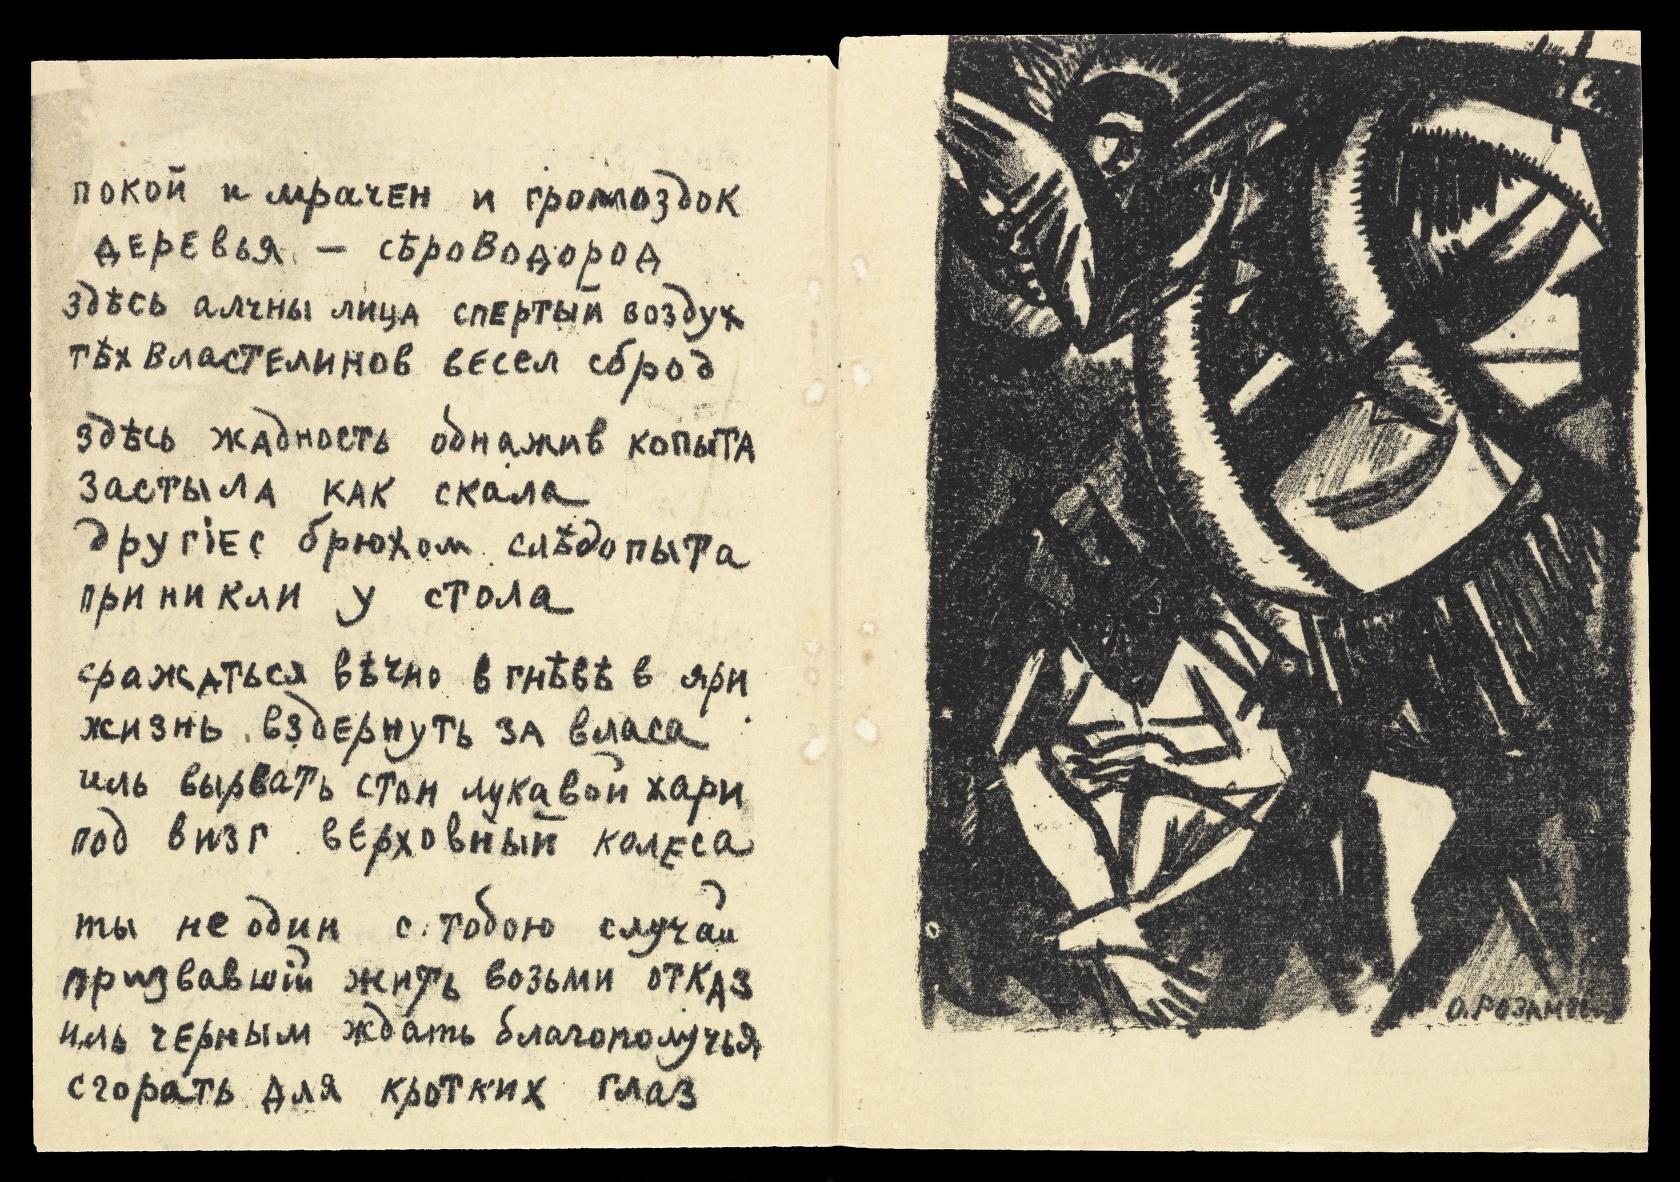 покой и мрачен и громоздок
деревья — сѣроводород
здѣсь алчны лица спертый воздух
тѣх властелинов весел сброд
здѣсь жадность обнажив копыта
застыла как скала
другіес брюхом слѣдопыта
приникли у стола
сражаться вѣчно в гнѣвѣ в яри
жизнь вздернуть за власа
иль вырвать стон лукавой хари
под визг верховный колеса
ты не один с тобою случай
призвавшій жить возьми отказ
иль черным ждать благополучья
сгорать для кротких глаз